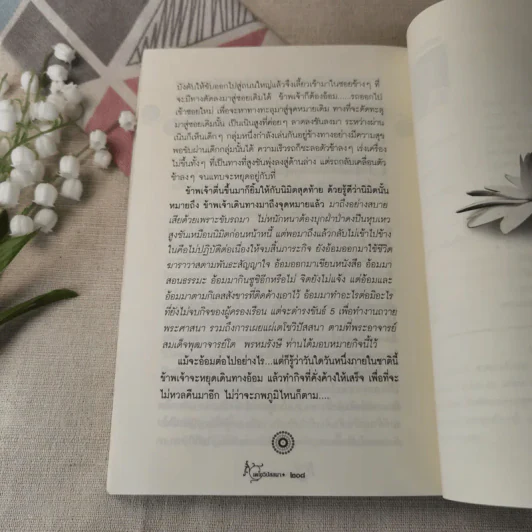 บังคับให้ขับออกไปสู่ถนนใหญ่แล้วจึงเลี้ยวเข้ามาในซอยข้างๆ ที่
จะมีทางตัดลงมาสู่ซอยเดิมได้ ข้าพเจ้าก็ต้องอ้อม.....รถออกไป
เข้าซอยใหม่ เพื่อจะหาทางทะลุมาสู่จุดหมายเดิม ทางที่จะตัดทะลุ
มาสู่ซอยเดิมนั้น เป็นเนินสูงที่ค่อยๆ ลาดลงชันลงมา ระหว่างผ่าน
เนินก็เห็นเด็กๆ กลุ่มหนึ่งกำลังเล่นกันอยู่ข้างทางอย่างมีความสุข
พอขับผ่านเด็กกลุ่มนั้นได้ ความเร็วรถก็ชะลอตัวช้าลงๆ เร่งเครื่อง
ไม่ขึ้นทั้งๆ ที่เป็นทางที่สูงชันพุ่งลงสู่ด้านล่าง แต่รถกลับเคลื่อนตัว
ช้าลงๆ จนแทบจะหยุดอยู่กับที่
ข้าพเจ้าตื่นขึ้นมาก็ยิ้มให้กับนิมิตสุดท้าย ด้วยรู้ดีว่านิมิตนั้น
หมายถึง ข้าพเจ้าเดินทางมาถึงจุดหมายแล้ว มาถึงอย่างสบาย
เสียด้วยเพราะขับรถมา ไม่หนักหนาต้องบุกฝ่าป่าดงปีนหุบเหว
สูงชันเหมือนนิมิตก่อนหน้าหนี้ แต่พอมาถึงแล้วกลับไม่เข้าไปข้าง
ในคือไม่ปฏิบัติต่อเนื่องให้จบสิ้นภาระกิจ ยังอ้อมออกมาใช้ชีวิต
ฆราวาสตามพันธะสัญญาใจ อ้อมออกมาเขียนหนังสือ อ้อมมา
สอนธรรมะ อ้อมมากินซูชิอีกหรือไม่ จิตยังไม่แจ้ง แต่อ้อมและ
อ้อมมาตามกิเลสสังขารที่ติดค้างเอาไว้ อ้อมมาทำอะไรต่อมิอะไร
ที่ยังไม่จบกิจของผู้ครองเรือน แต่จะดำรงขันธ์ 5 เพื่อทำงานถวาย
พระศาสนา รวมถึงการเผยแผ่เตโชวิปัสสนา ตามที่พระอาจารย์
สมเด็จพุฒาจารย์โต พรหมรังษี ท่านได้มอบหมายกิจนี้ไว้
แม้จะอ้อมต่อไปอย่างไร...แต่ก็รู้ว่าวันใดวันหนึ่งภายในชาตินี้
ข้าพเจ้าจะหยุดเดินทางอ้อม แล้วทำกิจที่คั่งค้างให้เสร็จ เพื่อที่จะ
ไม่หวลคืนมาอีก ไม่ว่าจะภพภูมิไหนก็ตาม....
๒๐๘